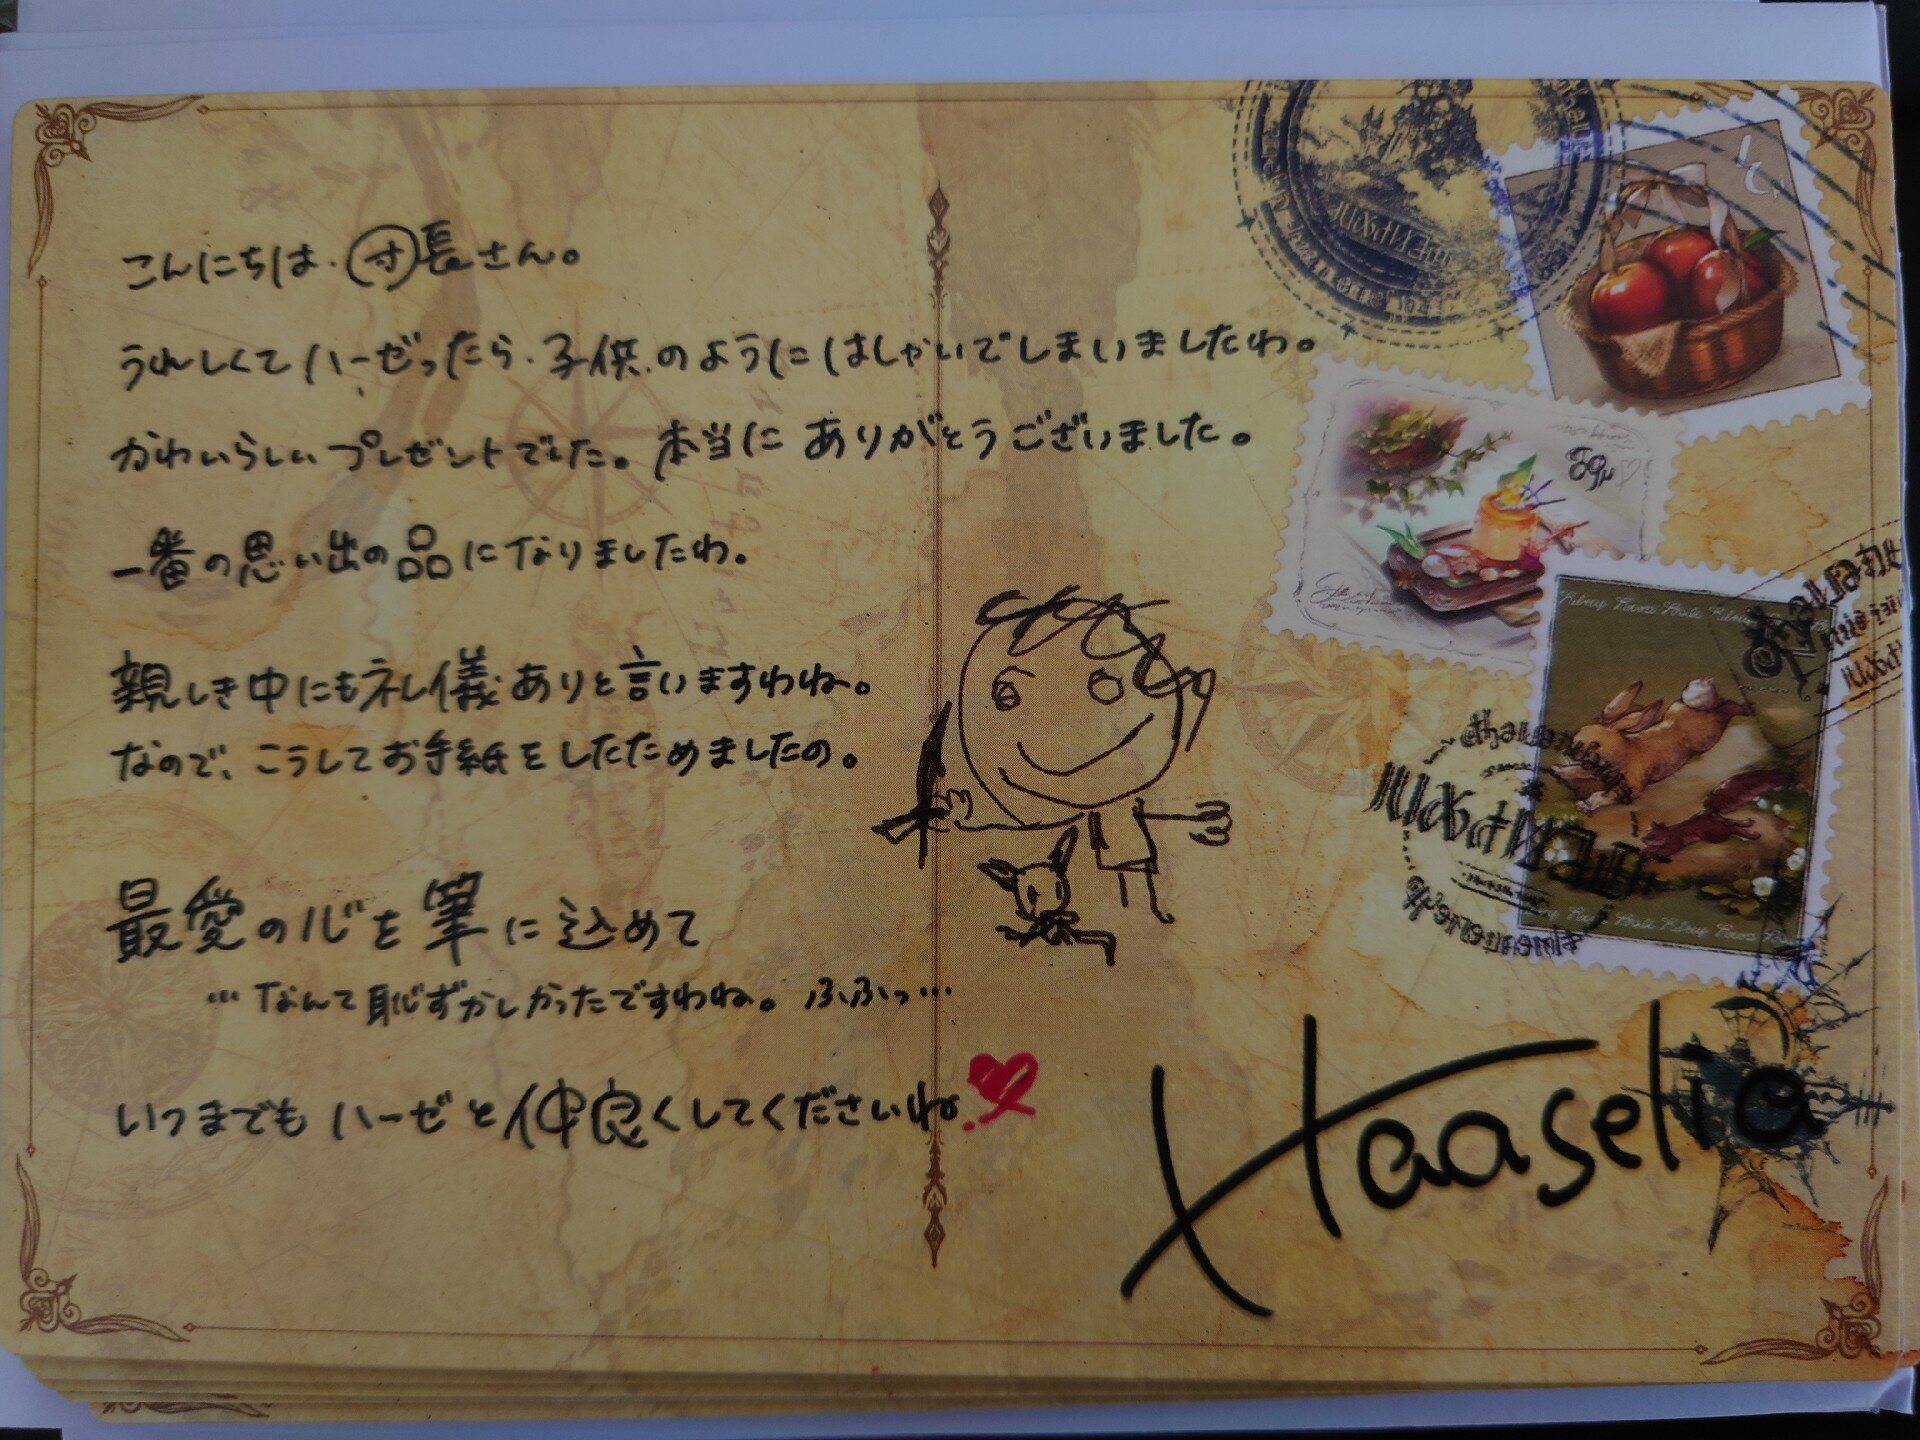 こんにちは、寸長さん。
うれしくてハーゼったら、子供のようにはしゃいでしまいましたわ。
かわいらしいプレゼントでした。本当にありがとうございました。
一番の思い出の品になりましたわ。
親しき中にも礼儀ありと言いますわね。
なので、こうしてお手紙をしたためましたの。
最愛の心を筆に込めて
…なんて恥ずかしかったですわね。ふふっ…
いつまでもハーゼと仲良くしてくださいね
Haaselia